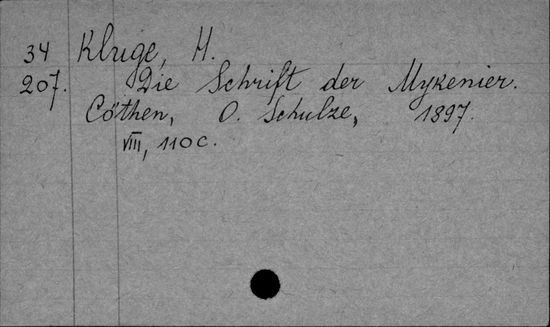 34 Kluge, H.
207. Die Schrift der Mykenier.
Cöthen, O. Schulze, 1897.
VIII, 110 c.